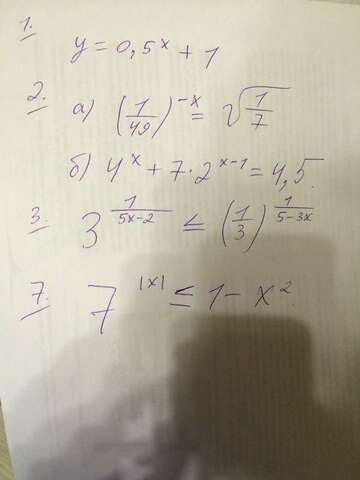 1.
y = 0,5^x + 1
2. а) (1/49)^-x = √(1/7)
б) 4^x + 7·2^(x-1) = 4,5.
3. 3^(1/(5x-2)) ≤ (1/3)^(1/(5-3x))
7. 7^|x| ≤ 1 - x^2